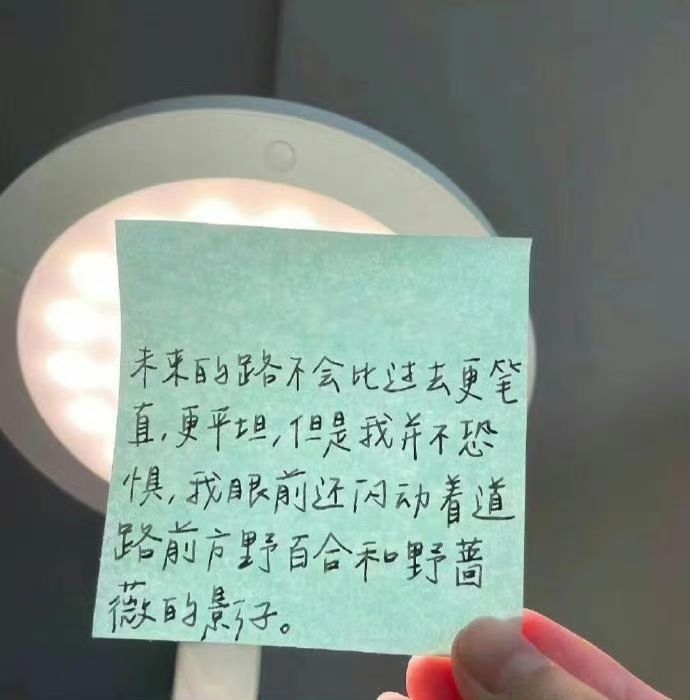 未来的路不会比过去更笔
直,更平坦,但是我并不恐
惧,我眼前还闪动着道
路前方野百合和野蔷
薇的影子。